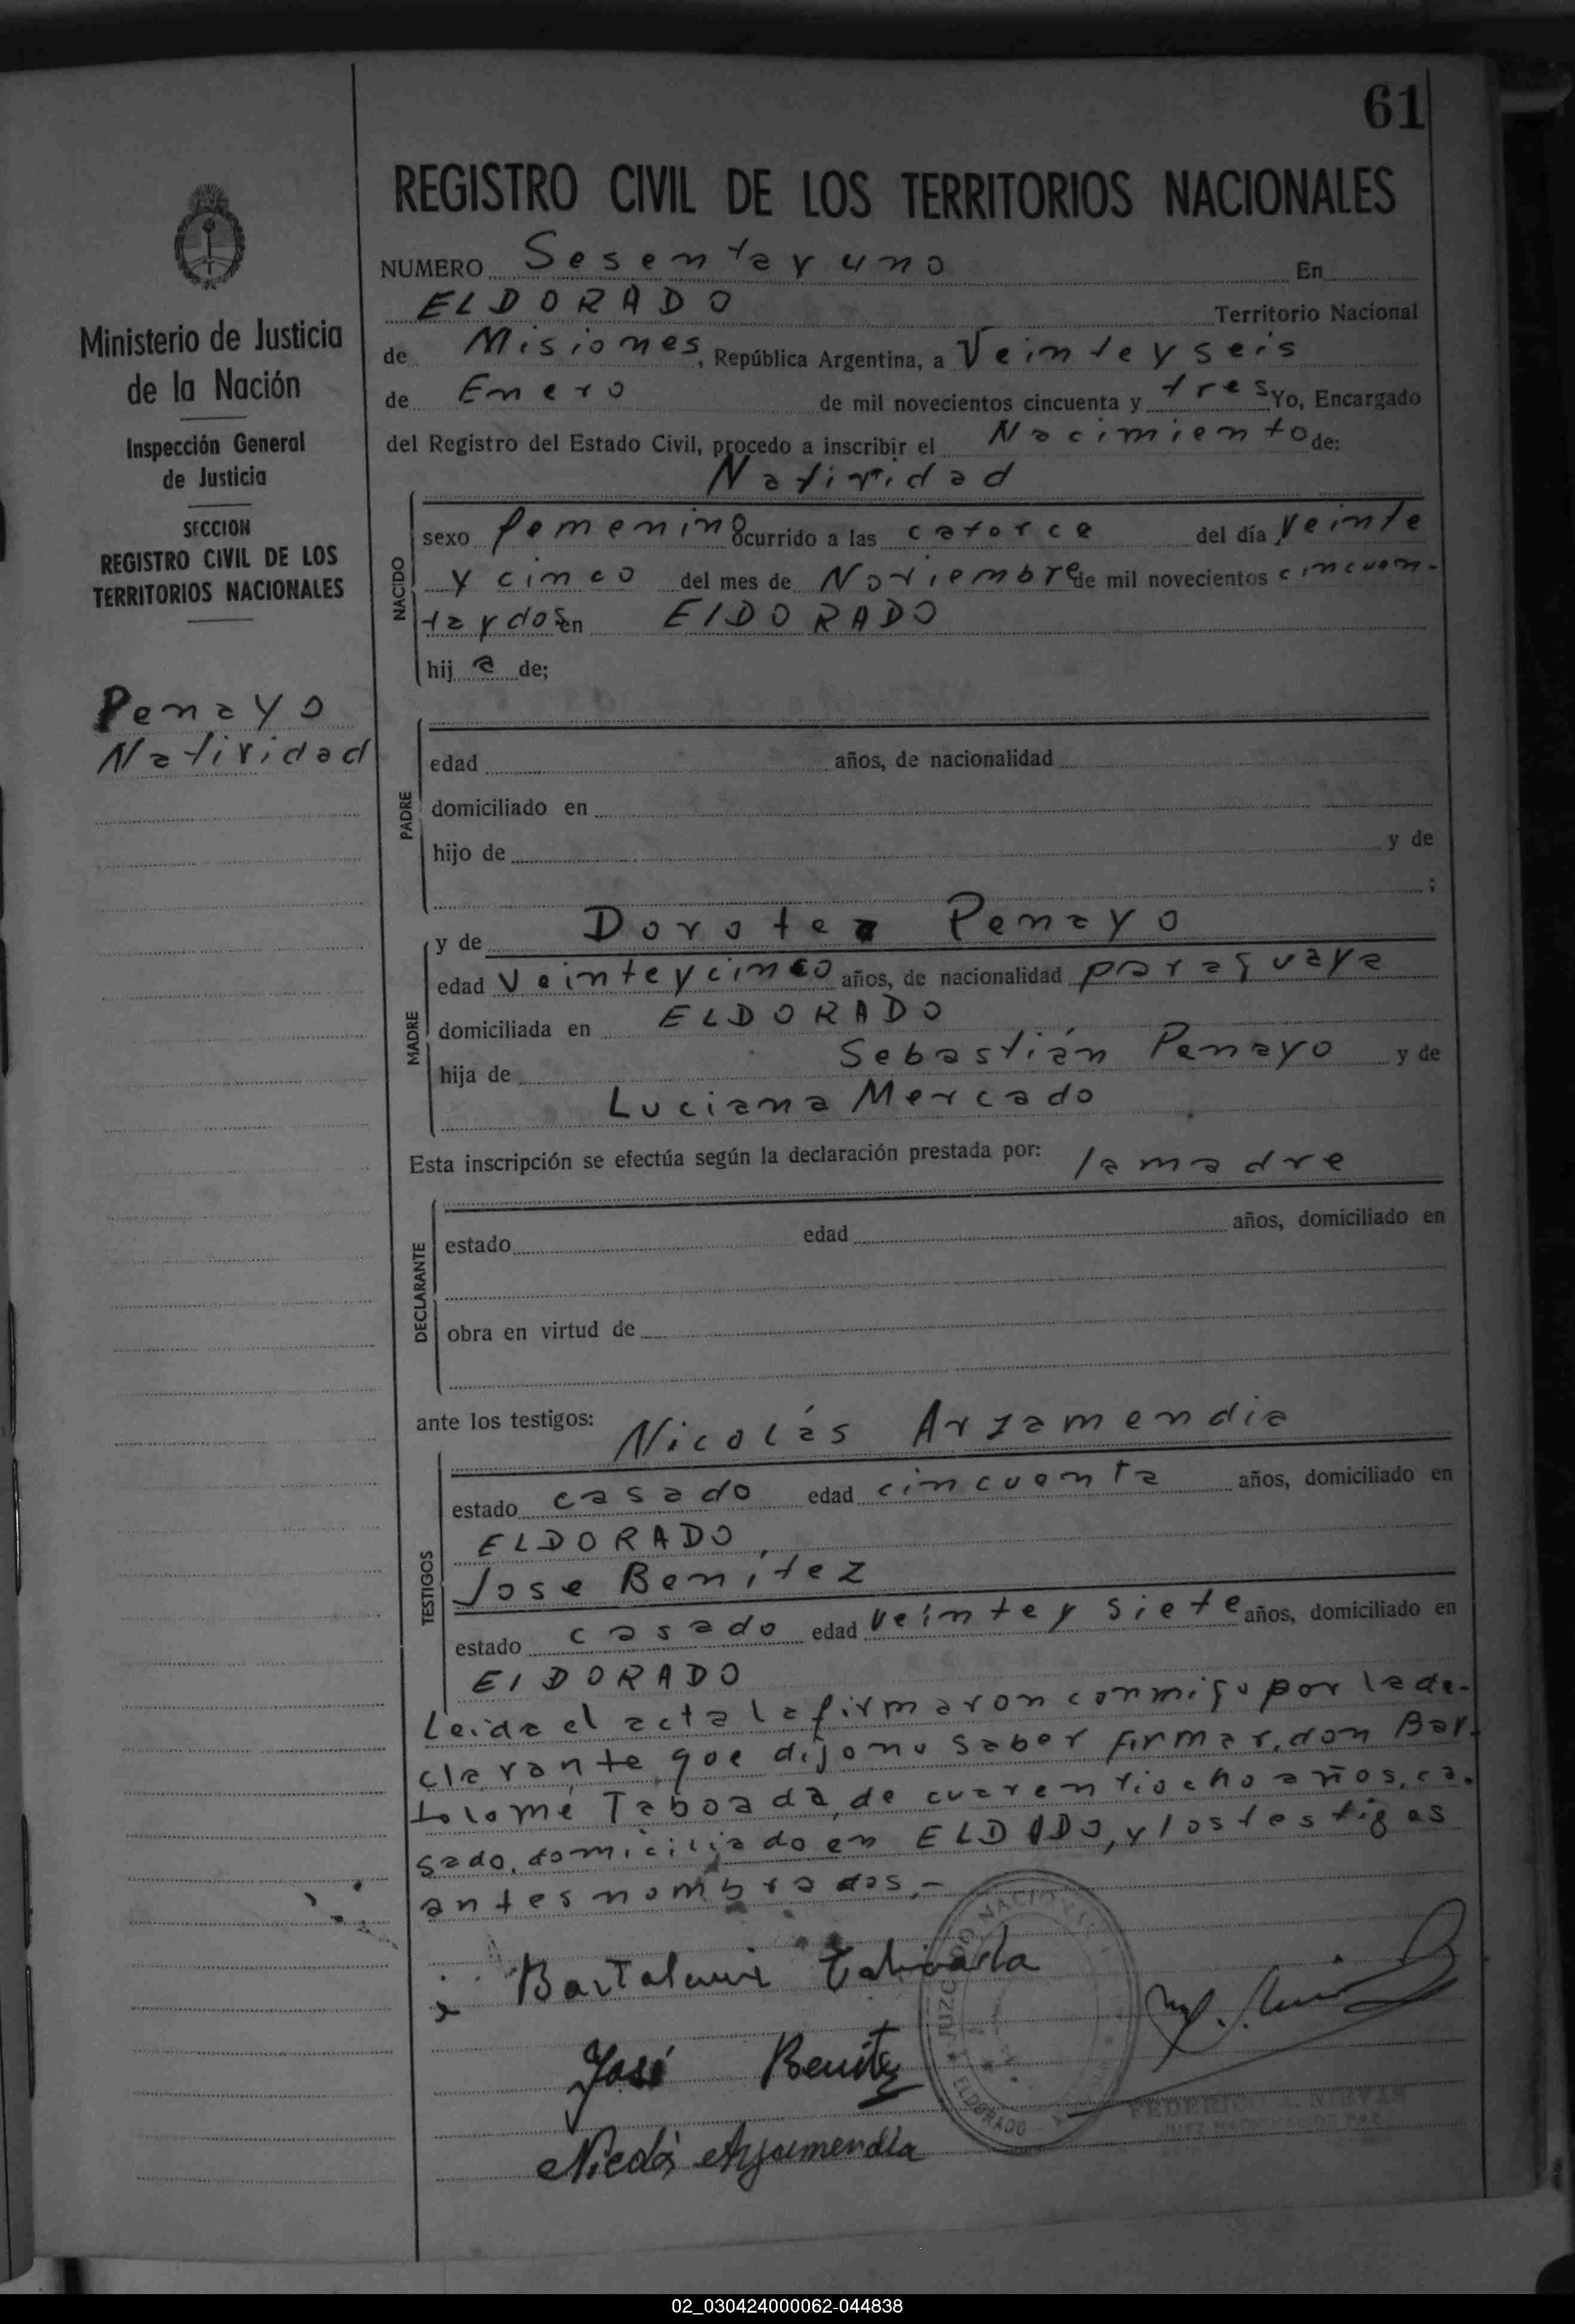 61
REGISTRO CIVIL DE LOS TERRITORIOS NACIONALES
Ministerio de Justicia
de la Nación
Inspección General
de Justicia
SECCION
REGISTRO CIVIL DE LOS
TERRITORIOS NACIONALES
Penayo
Natividad
NUMERO Sesenta y uno En
ELDORADO Territorio Nacional
de Misiones, República Argentina, a Veinte y seis
de Enero de mil novecientos cincuenta y tres Yo, Encargado
del Registro del Estado Civil, procedo a inscribir el Nacimiento de:
Natividad
NACIDO
sexo femenino ocurrido a las catorce del día veinte
y cinco del mes de Noviembre de mil novecientos cincuen-
ta y dos en ElDORADO
hij a de;
PADRE
edad años, de nacionalidad
domiciliado en
hijo de y de
;
MADRE
y de Dorotea Penayo
edad Veinte y cinco años, de nacionalidad paraguaya
domiciliada en ELDORADO
hija de Sebastián Penayo y de
Luciana Mercado
Esta inscripción se efectúa según la declaración prestada por: la madre
DECLARANTE
estado edad años, domiciliado en
obra en virtud de
ante los testigos: Nicolás Arzamendia
TESTIGOS
estado casado edad cincuenta años, domiciliado en
ELDORADO,
Jose Benítez
estado casado edad veinte y siete años, domiciliado en
ElDORADO
Leida el acta la firmaron conmigo por la de-
clarante que dijo no saber firmar, don Bar-
tolomé Taboada, de cuarentiocho años, ca-
sado, domiciliado en ELDADO, y los testigos
antes nombrados.-
Bartolomé Taboada
José Benitez
Nicolás Arzamendia
JUZGADO NACIONAL
ELDORADO
FEDERICO
JUEZ NACIONAL DE PAZ
02_030424000062-044838